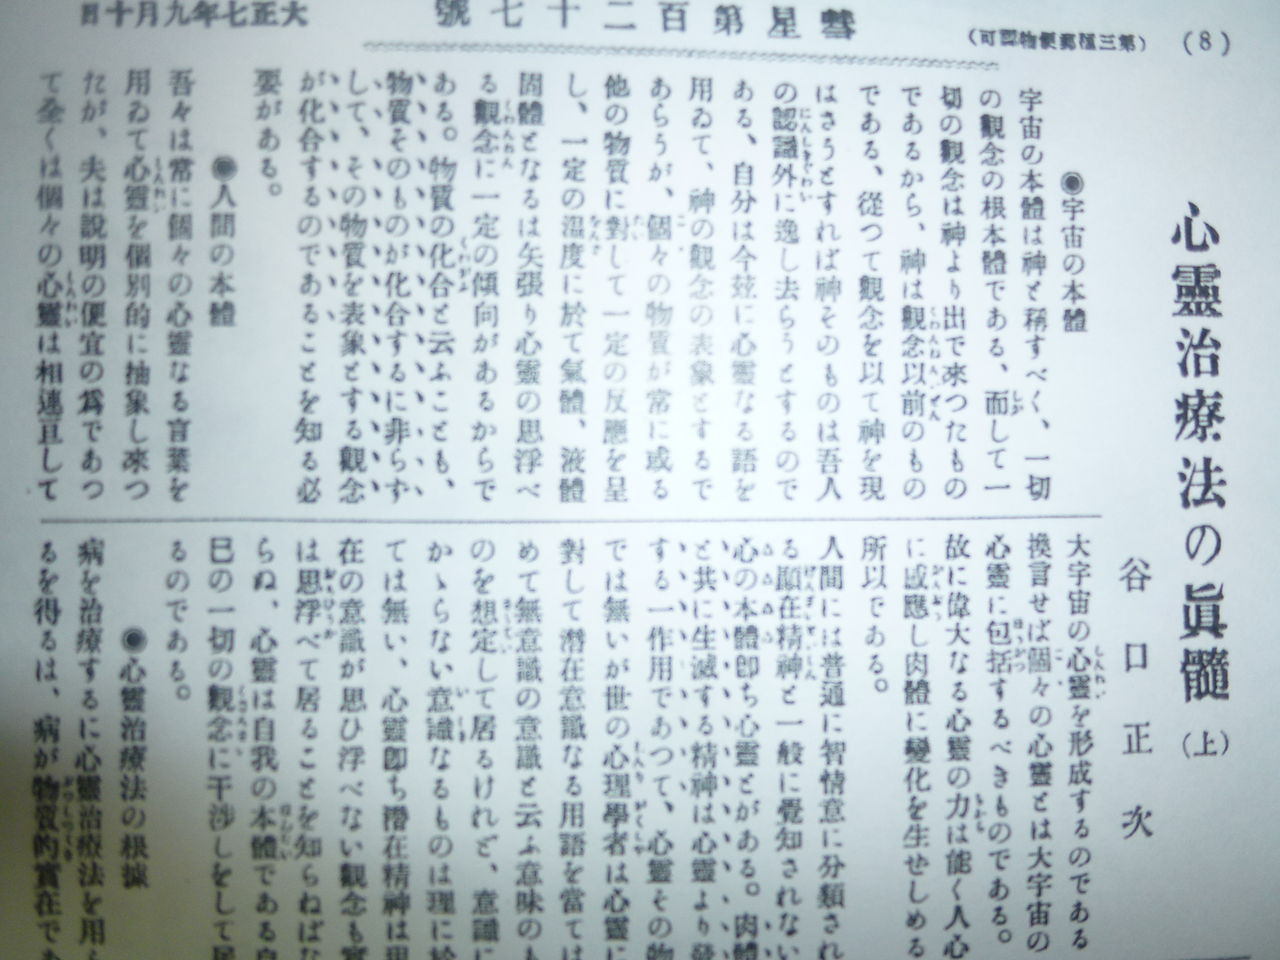 (8)
(第三種郵便物認可)
彗星第百二十七號
大正七年九月十日
心靈治療法の眞髓(上)
谷口正次
◉宇宙の本體
宇宙の本體は神と稱すべく、一切
の觀念の根本體である、而して一
切の觀念は神より出で來つたもの
であるから、神は觀念以前のもの
である、從つて觀念を以て神を現
はさうとすれば神そのものは吾人
の認識外に逸し去らうとするので
ある、自分は今玆に心靈なる語を
用ゐて、神の觀念の表象とするで
あらうが、個々の物質が常に或る
他の物質に對して一定の反應を呈
し、一定の溫度に於て氣體、液體
固體となるは矢張り心靈の思浮べ
る觀念に一定の傾向があるからで
ある。物質の化合と云ふことも、
物質そのものが化合するに非らず
して、その物質を表象とする觀念
が化合するのであることを知る必
要がある。
◉人間の本體
吾々は常に個々の心靈なる言葉を
用ゐて心靈を個別的に抽象し來つ
たが、夫は說明の便宜の爲であつ
て全くは個々の心靈は相連亘して
大宇宙の心靈を形成するのである
換言せば個々の心靈とは大宇宙の
心靈に包括するべきものである。
故に偉大なる心靈の力は能く人心
に感應し肉體に變化を生せしめる
所以である。
人間には普通に智情意に分類され
る顯在精神と一般に覺知されない
心の本體卽ち心靈とがある。肉體
と共に生滅する精神は心靈より發
する一作用であつて、心靈その物
では無いが世の心理學者は心靈に
對して潛在意識なる用語を當ては
めて無意識の意識と云ふ意味のも
のを想定して居るけれど、意識に
かゝらない意識なるものは理に於
ては無い、心靈卽ち潛在精神は現
在の意識が思ひ浮べない觀念も實
は思浮べて居ることを知らねばな
らぬ、心靈は自我の本體である自
己の一切の觀念に干涉しをして居
るのである。
◉心靈治療法の根據
病を治療するに心靈治療法を用ゐ
るを得るは、病が物質的實在であ